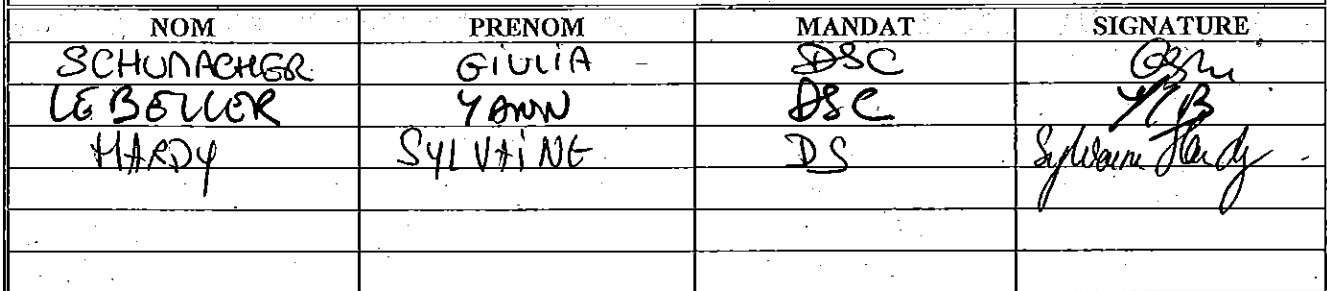 NOM PRENOM MANDAT SIGNATURE
SCHUMACHER GIULIA DSC
LE BELLER YANN DSC YLB
HARDY SYLVAINE DS Sylvaine Hardy